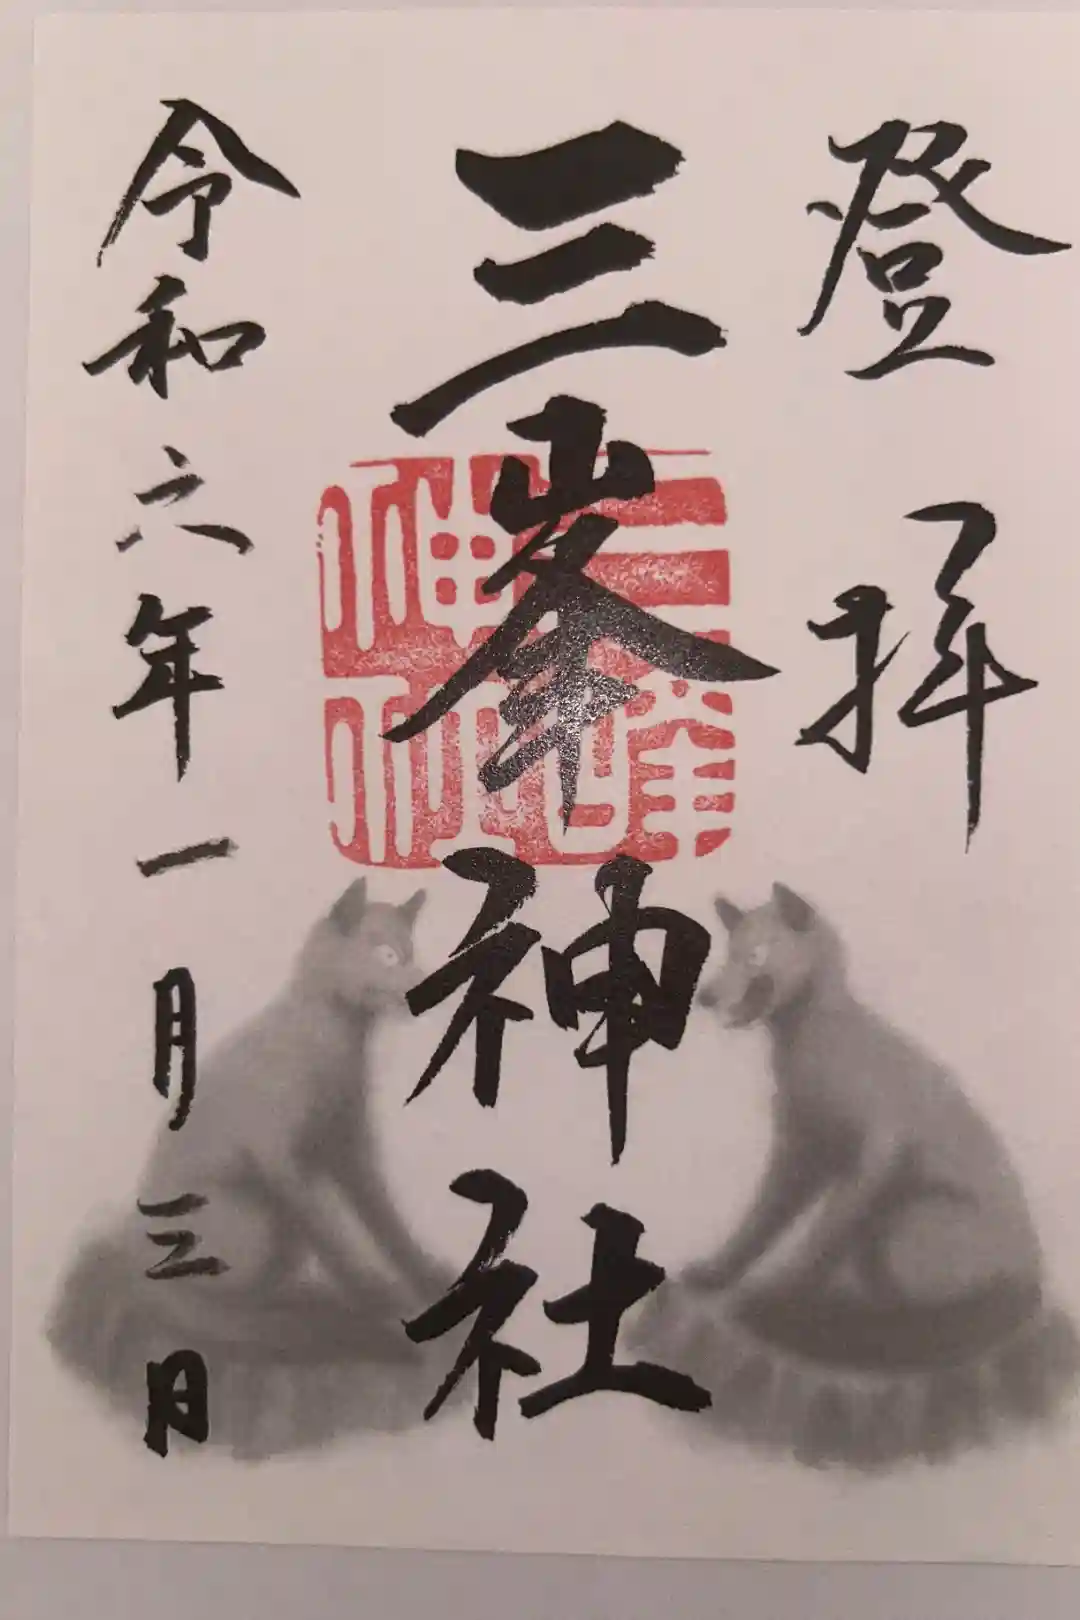 登拝
三峯神社
三峰神社
令和六年一月三日